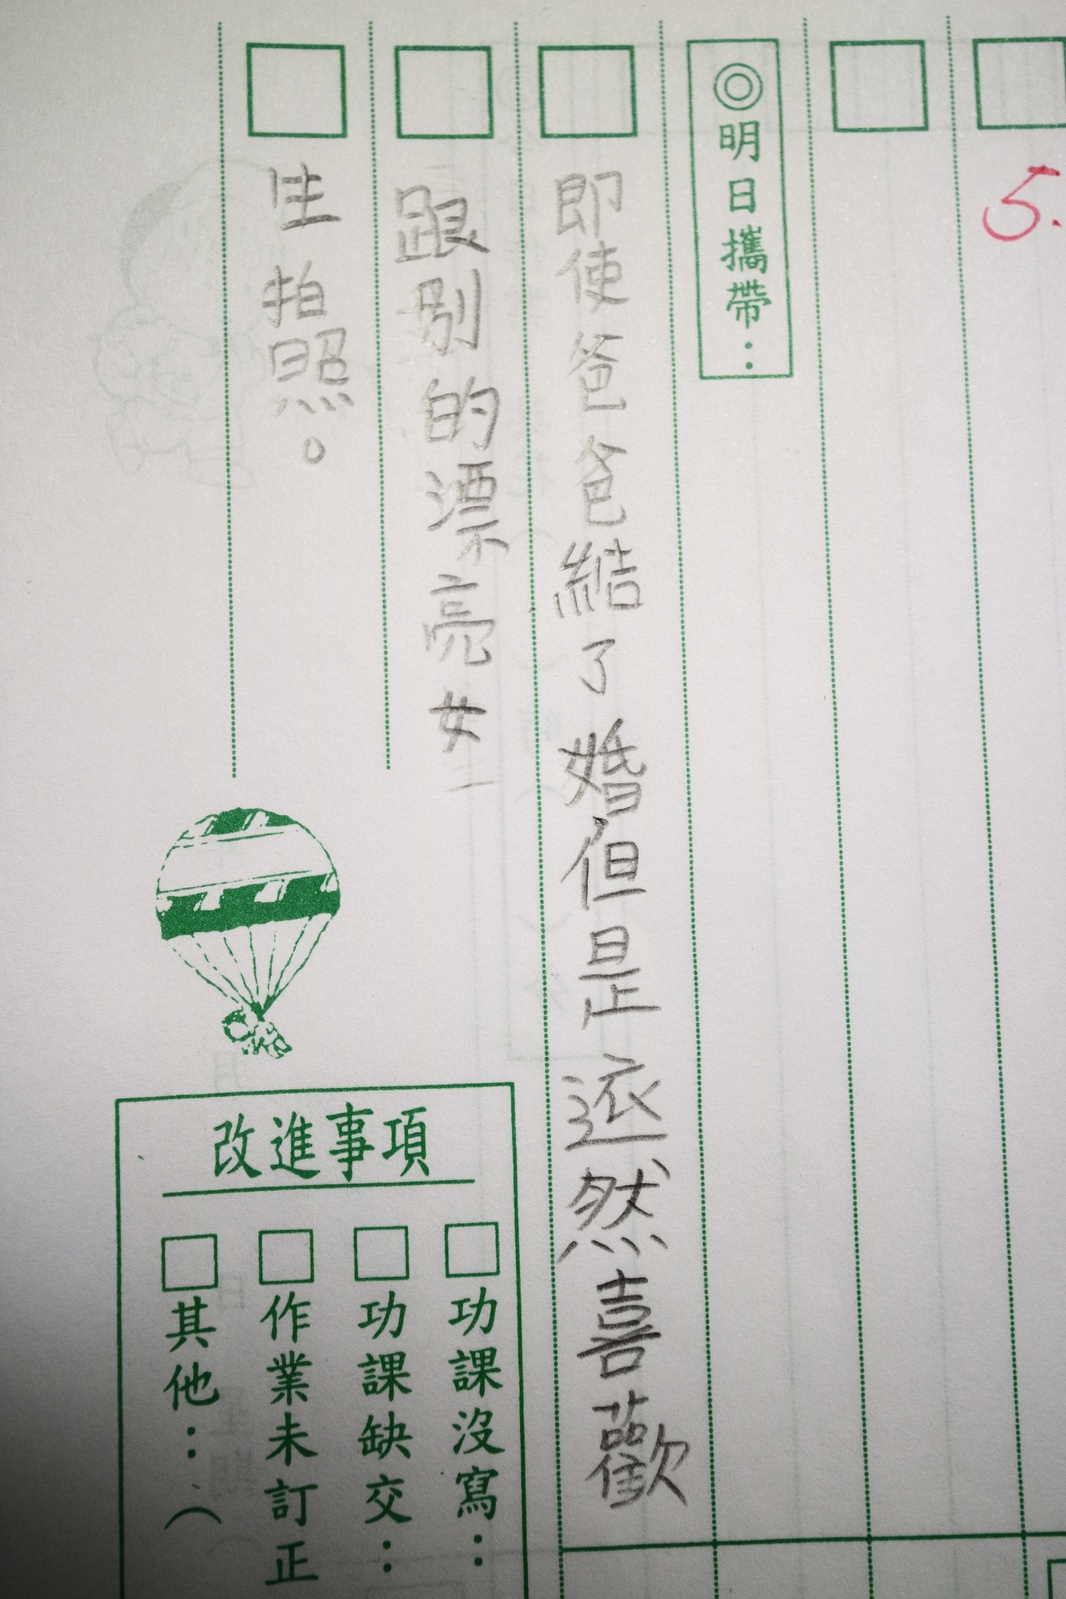 5.
◎明日攜帶：
即使爸爸結了婚但是依然喜歡
跟別的漂亮女
生拍照。
改進事項
功課沒寫：
功課缺交：
作業未訂正
其他：（